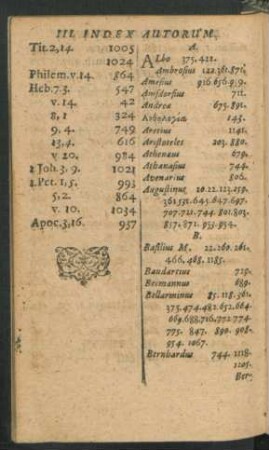 III. INDEX AUTORUM.
Tit. 2, 14. 1005
1024
Philem. v. 14. 864
Heb. 7. 3. 547
v. 14. 42
8, 1 324
9, 4. 749
13, 4. 616
v. 20. 984
1 Joh. 3, 9. 1021
1. Pet. 1, 5. 993
5, 2. 864
v. 10. 1034
Apoc. 3, 16. 957
A.
Albo 375. 421.
Ambrosius 122. 381. 871.
Amesius 916. 656. 959.
Amsdorfius 711.
Andreæ 675. 891.
143.
Aretius 1141.
Aristoteles 203. 880.
Athenæus 679.
Athanasius 744.
Avenarius 806.
Augustinus 10. 22. 123. 259.
361. 551. 645. 647. 697.
707. 721. 744. 801. 803.
817. 871. 953. 954.
B.
Basilius M. 22. 260. 261.
466. 485. 1185.
Baudartius 725.
Becmannus 689.
Bellarminus 85. 118. 361.
373. 474. 482. 652. 664.
669. 688. 716. 772. 774.
775. 847. 890. 908.
954. 1067.
Bernhardus 744. 1118.
1105.
Ber-